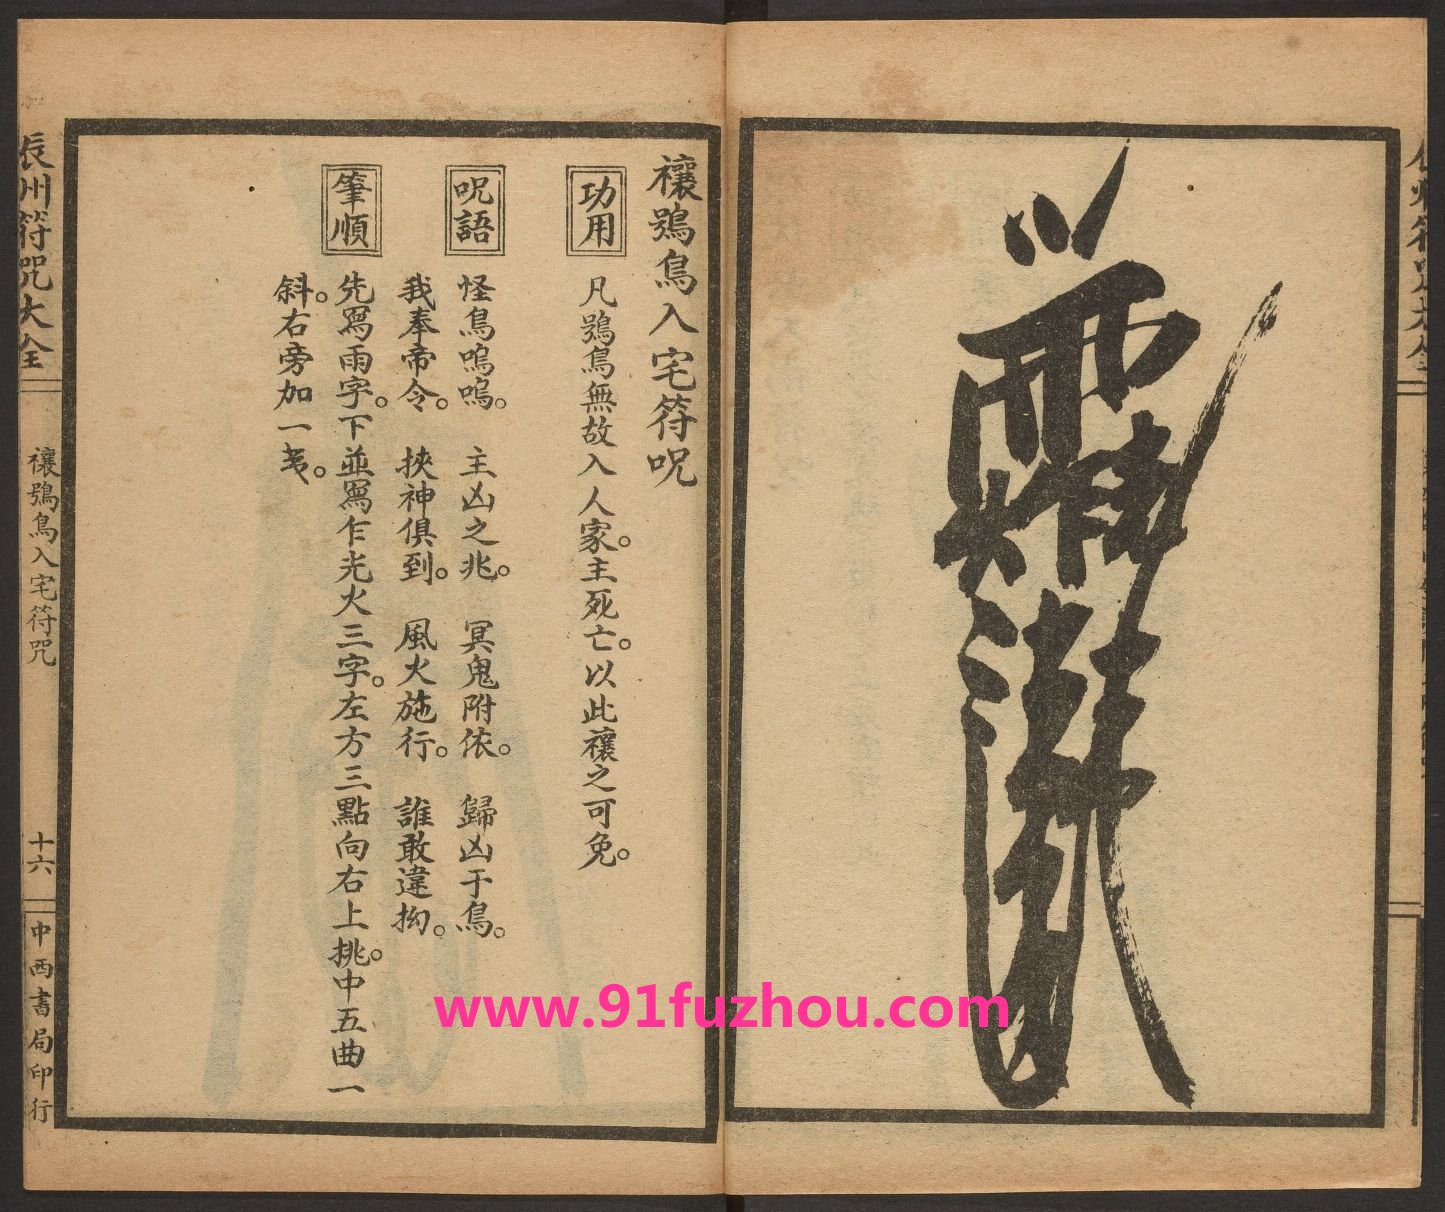 禳鵶鳥入宅符呪
功用
凡鵶鳥無故入人家。主死亡。以此禳之可免。
呪語
怪鳥嗚嗚。 主凶之兆。 冥鬼附依。 歸凶于鳥。
我奉帝令。 挾神俱到。 風火施行。 誰敢違拗。
筆順
先寫雨字。下並寫乍光火三字。左方三點向右上挑。中五曲一
斜。右旁加一戋。
辰州符呪大全
禳鵶鳥入宅符呪
十六
中西書局印行
www.91fuzhou.com